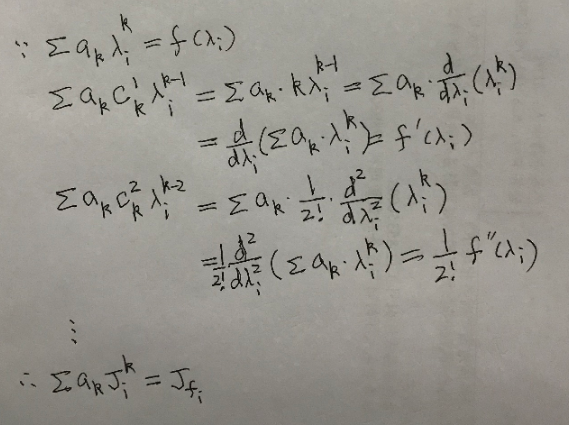 ∵ Σ a_k λ_i^k = f(λ_i)
Σ a_k C_k^1 λ_i^{k-1} = Σ a_k · k λ_i^{k-1} = Σ a_k · d/dλ_i (λ_i^k)
= d/dλ_i (Σ a_k · λ_i^k) = f'(λ_i)
Σ a_k C_k^2 λ_i^{k-2} = Σ a_k · 1/2! · d^2/dλ_i^2 (λ_i^k)
= 1/2! d^2/dλ_i^2 (Σ a_k · λ_i^k) = 1/2! f''(λ_i)
⋮
∴ Σ a_k J_i^k = J_{f_i}